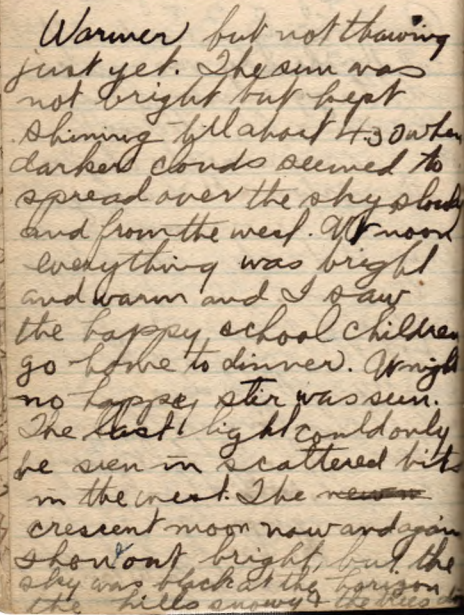 Warmer but not thawing
just yet. The sun was
not bright but kept
shining till about 4:30 when
darker couds seemed to
spread over the sky slowly
and from the west. At noon
everything was bright
and warm and I saw
the happy school children
go home to dinner. At night
no happy stir was seen.
The last light could only
be seen in scattered bits
in the west. The
crescent moon now and again
shone out bright, but the
sky was black at the horizon,
the hills snowy & the